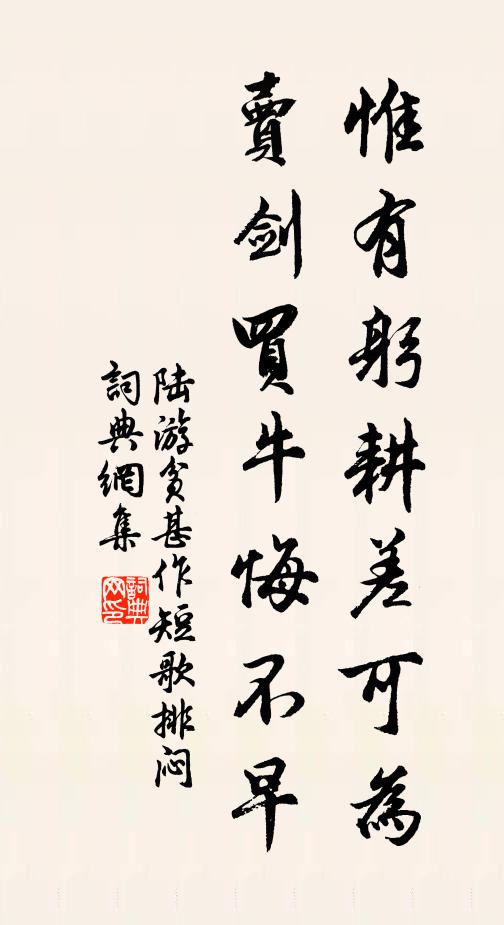 惟有躬耕差可為
賣劍買牛悔不早
陸游貧甚作短歌排悶
詞典網集
詞典網印